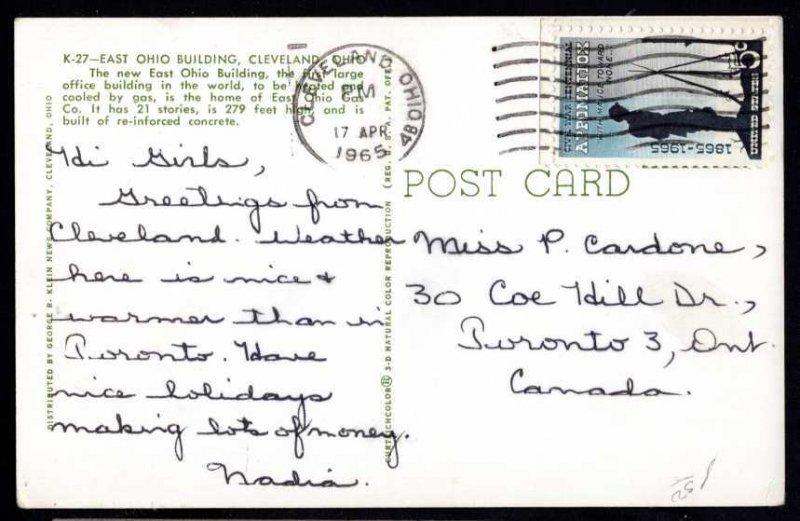 K-27—EAST OHIO BUILDING, CLEVELAND, OHIO
The new East Ohio Building, the first large
office building in the world, to be heated and
cooled by gas, is the home of East Ohio Gas
Co. It has 21 stories, is 279 feet high and is
built of re-inforced concrete.
Hi Girls,
Greetings from
Cleveland. Weather
here is nice +
warmer than in
Toronto. Have
nice holidays
making lots of money.
Nadia.
DISTRIBUTED BY GEORGE R. KLEIN NEWS COMPANY, CLEVELAND, OHIO
CURTEICHCOLOR® 3-D NATURAL COLOR REPRODUCTION (REG. U.S.A. PAT. OFF.)
CLEVELAND, OHIO 480
PM
17 APR
1965
CIVIL WAR CENTENNIAL
APPOMATTOX
WITH MALICE TOWARD
NONE...
1865-1965
UNITED STATES
POST CARD
Miss P. Cardone,
30 Coe Hill Dr.,
Toronto 3, Ont.
Canada.